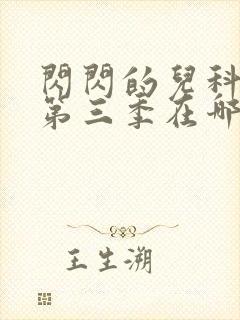 閃閃的兒科
第三季在哪
王生溯